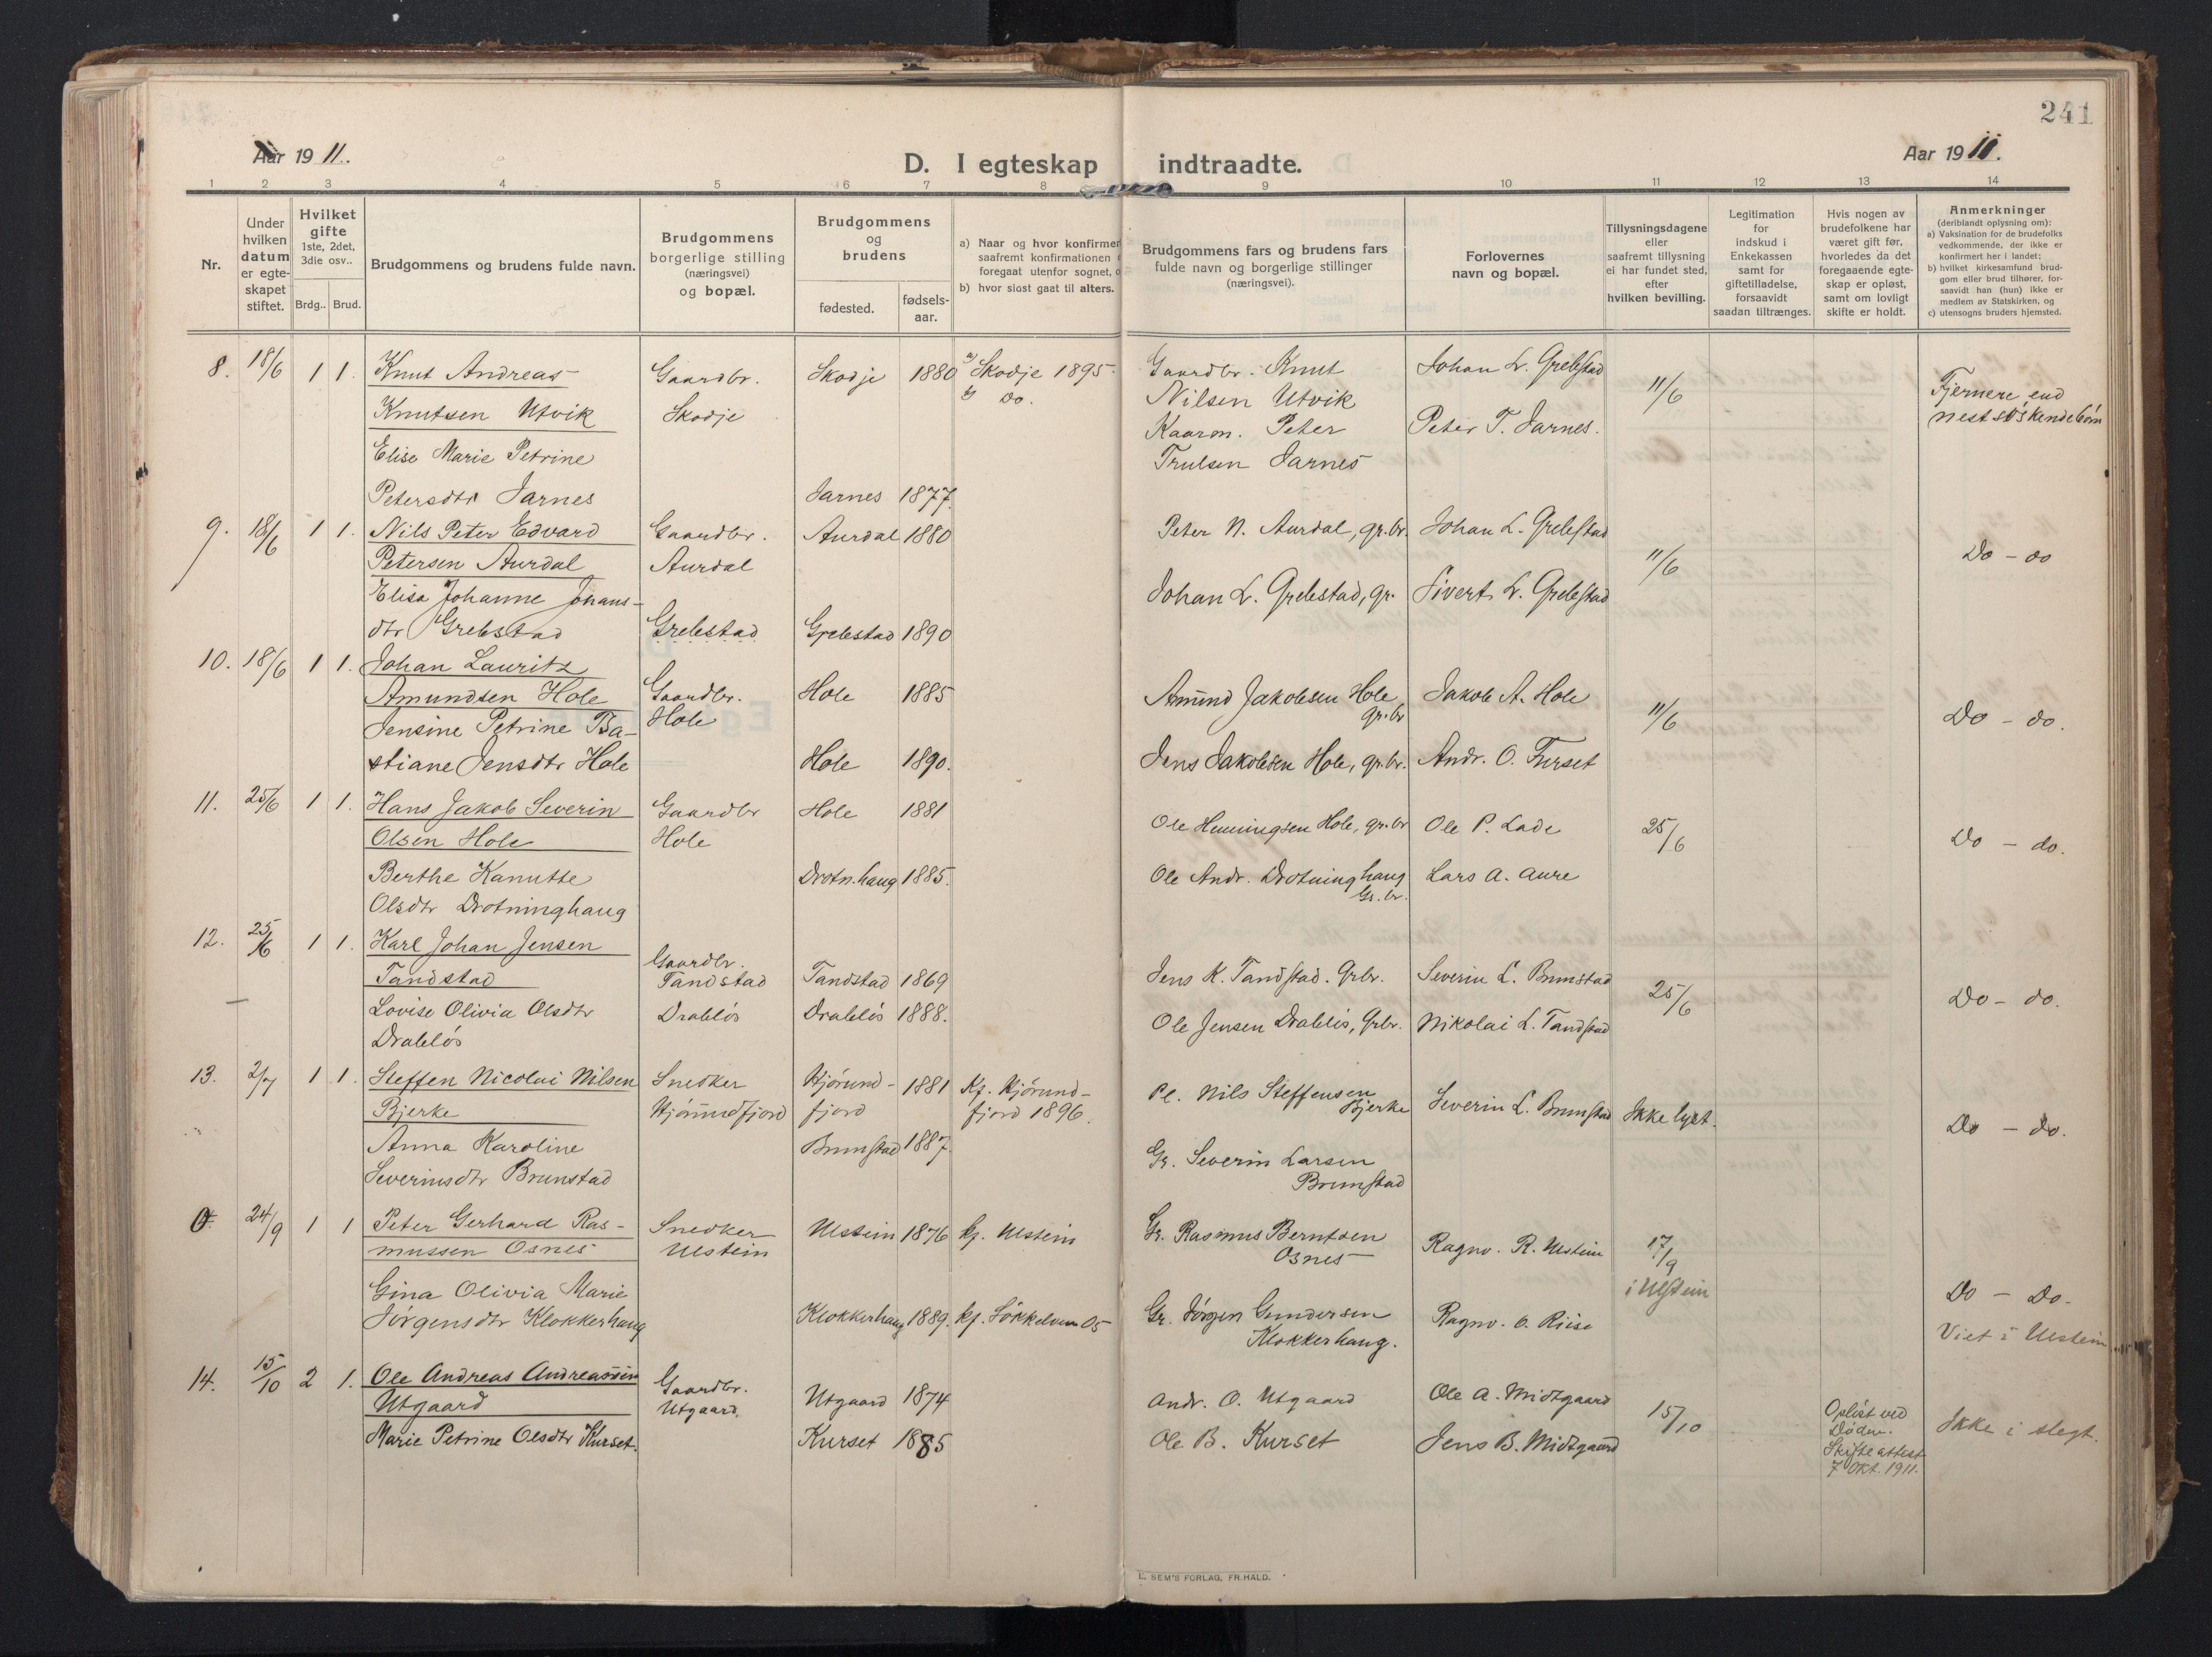 241
Aar 1911.
D. I egteskap indtraadte.
Aar 1911.
1 2 3 4 5 6 7 8 9 10 11 12 13 14
Nr.
Under
hvilken
datum
er egte-
skapet
stiftet.
Hvilket
gifte
1ste, 2det,
3die osv..
Brdg.. Brud.
Brudgommens og brudens fulde navn.
Brudgommens
borgerlige stilling
(næringsvei)
og bopæl.
Brudgommens
og
brudens
fødested.
fødsels-
aar.
a) Naar og hvor konfirmer
saafremt konfirmationen
foregaat utenfor sognet,
b) hvor sidst gaat til alters.
Brudgommens fars og brudens fars
fulde navn og borgerlige stillinger
(næringsvei).
Forlovernes
navn og bopæl.
Tillysningsdagene
eller
saafremt tillysning
ei har fundet sted,
efter
hvilken bevilling.
Legitimation
for
indskud i
Enkekassen
samt for
giftetilladelse,
forsaavidt
saadan tiltrænges.
Hvis nogen av
brudefolkene har
været gift før,
hvorledes da det
foregaaende egte-
skap er opløst,
samt om lovligt
skifte er holdt.
Anmerkninger
(deriblandt oplysning om):
a) Vaksination for de brudefolks
vedkommende, der ikke er
konfirmert her i landet;
b) hvilket kirkesamfund brud-
gom eller brud tilhører, for-
saavidt han (hun) ikke er
medlem av Statskirken, og
c) utensogns bruders hjemsted.
8. 18/6 1 1. Knut Andreas Gaardbr. Skodje 1880 a) Skodje 1895. Gaardbr. Knut Johan L. Grebstad
Knutsen Utvik Skodje b) Do. Nilsen Utvik 11/6 Fjernere end
Kaarm. Peter Peter T. Jarnes. nestsöskendebörn
Elise Marie Petrine Trulsen Jarnes
Petersdtr Jarnes Jarnes 1877.
9. 18/6 1 1. Nils Peter Edvard Gaardbr. Aurdal 1880 Peter N. Aurdal, gr.br. Johan L. Grebstad
Petersen Aurdal Aurdal 11/6 Do - do
Elisa Johanne Johans- Johan L. Grebestad, gr. Sivert L. Grebstad
dtr Grebstad Grebestad Grebestad 1890
10. 18/6 1 1. Johan Lauritz
Amundsen Hole Gaardbr. Hole 1885 Amund Jakobsen Hole Jakob A. Hole
Jensine Petrine Ba- Hole gr.br 11/6 Do - do.
stiane Jensdtr Hole Hole 1890. Jens Jakobsen Hole, gr.br. Andr. O. Furset
11. 25/6 1 1. Hans Jakob Severin Gaardbr Hole 1881 Ole Henningsen Hole, gr.br Ole P. Lade 25/6
Olsen Hole Hole Do - do.
Berthe Kanutte Drotn.haug 1885. Ole Andr. Drotninghaug Lars A. Aure
Olsdtr Drotninghaug Gr.br.
12. 25/6 1 1. Karl Johan Jensen Gaardbr.
Tandstad Tandstad Tandstad 1869 Jens K. Tandstad. Grbr. Severin L. Brunstad 25/6 Do - do.
Lovise Olivia Olsdtr Drabløs Drabløs 1888. Ole Jensen Drabløs, Grbr. Nikolai L. Tandstad
Drabløs
13. 2/7 1 1. Steffen Nicolai Nilsen Snedker Hjørund- 1881 Kf. Hjørund- Pl. Nils Steffensen
Bjerke Hjørundfjord fjord fjord 1896. Bjerke Severin L. Brunstad Ikke lyst.
Anna Karoline Brunstad 1887. Do - do.
Severinsdtr Brunstad Gr. Severin Larsen
Brunstad
0. 24/9 1 1 Peter Gerhard Ras- Snedker Ulstein 1876 kf. Ulstein Gr. Rasmus Berntsen
mussen Osnes Ulstein Osnes Ragnv. R. Ulstein 17/9
i Ulstein
Gina Olivia Marie Do - Do.
Jørgensdtr Klokkerhaug Klokkerhaug 1889. kf. Søkkelven 05 Gr. Jørgen Gundersen Ragnv. O. Riise
Klokkerhaug. Viet i Ulstein
14. 15/10 2 1. Ole Andreas Andreassen Gaardbr.
Utgaard Utgaard. Utgaard 1874 Andr. O. Utgaard Ole A. Midtgaard 15/10
Marie Petrine Olsdtr Kurset. Kurset 1885 Ole B. Kurset Jens B. Midtgaard
Opløst ved
Døden.
Skifteattest
7 Okt. 1911.
Ikke i slegt.
L. SEM'S FORLAG, FR.HALD.